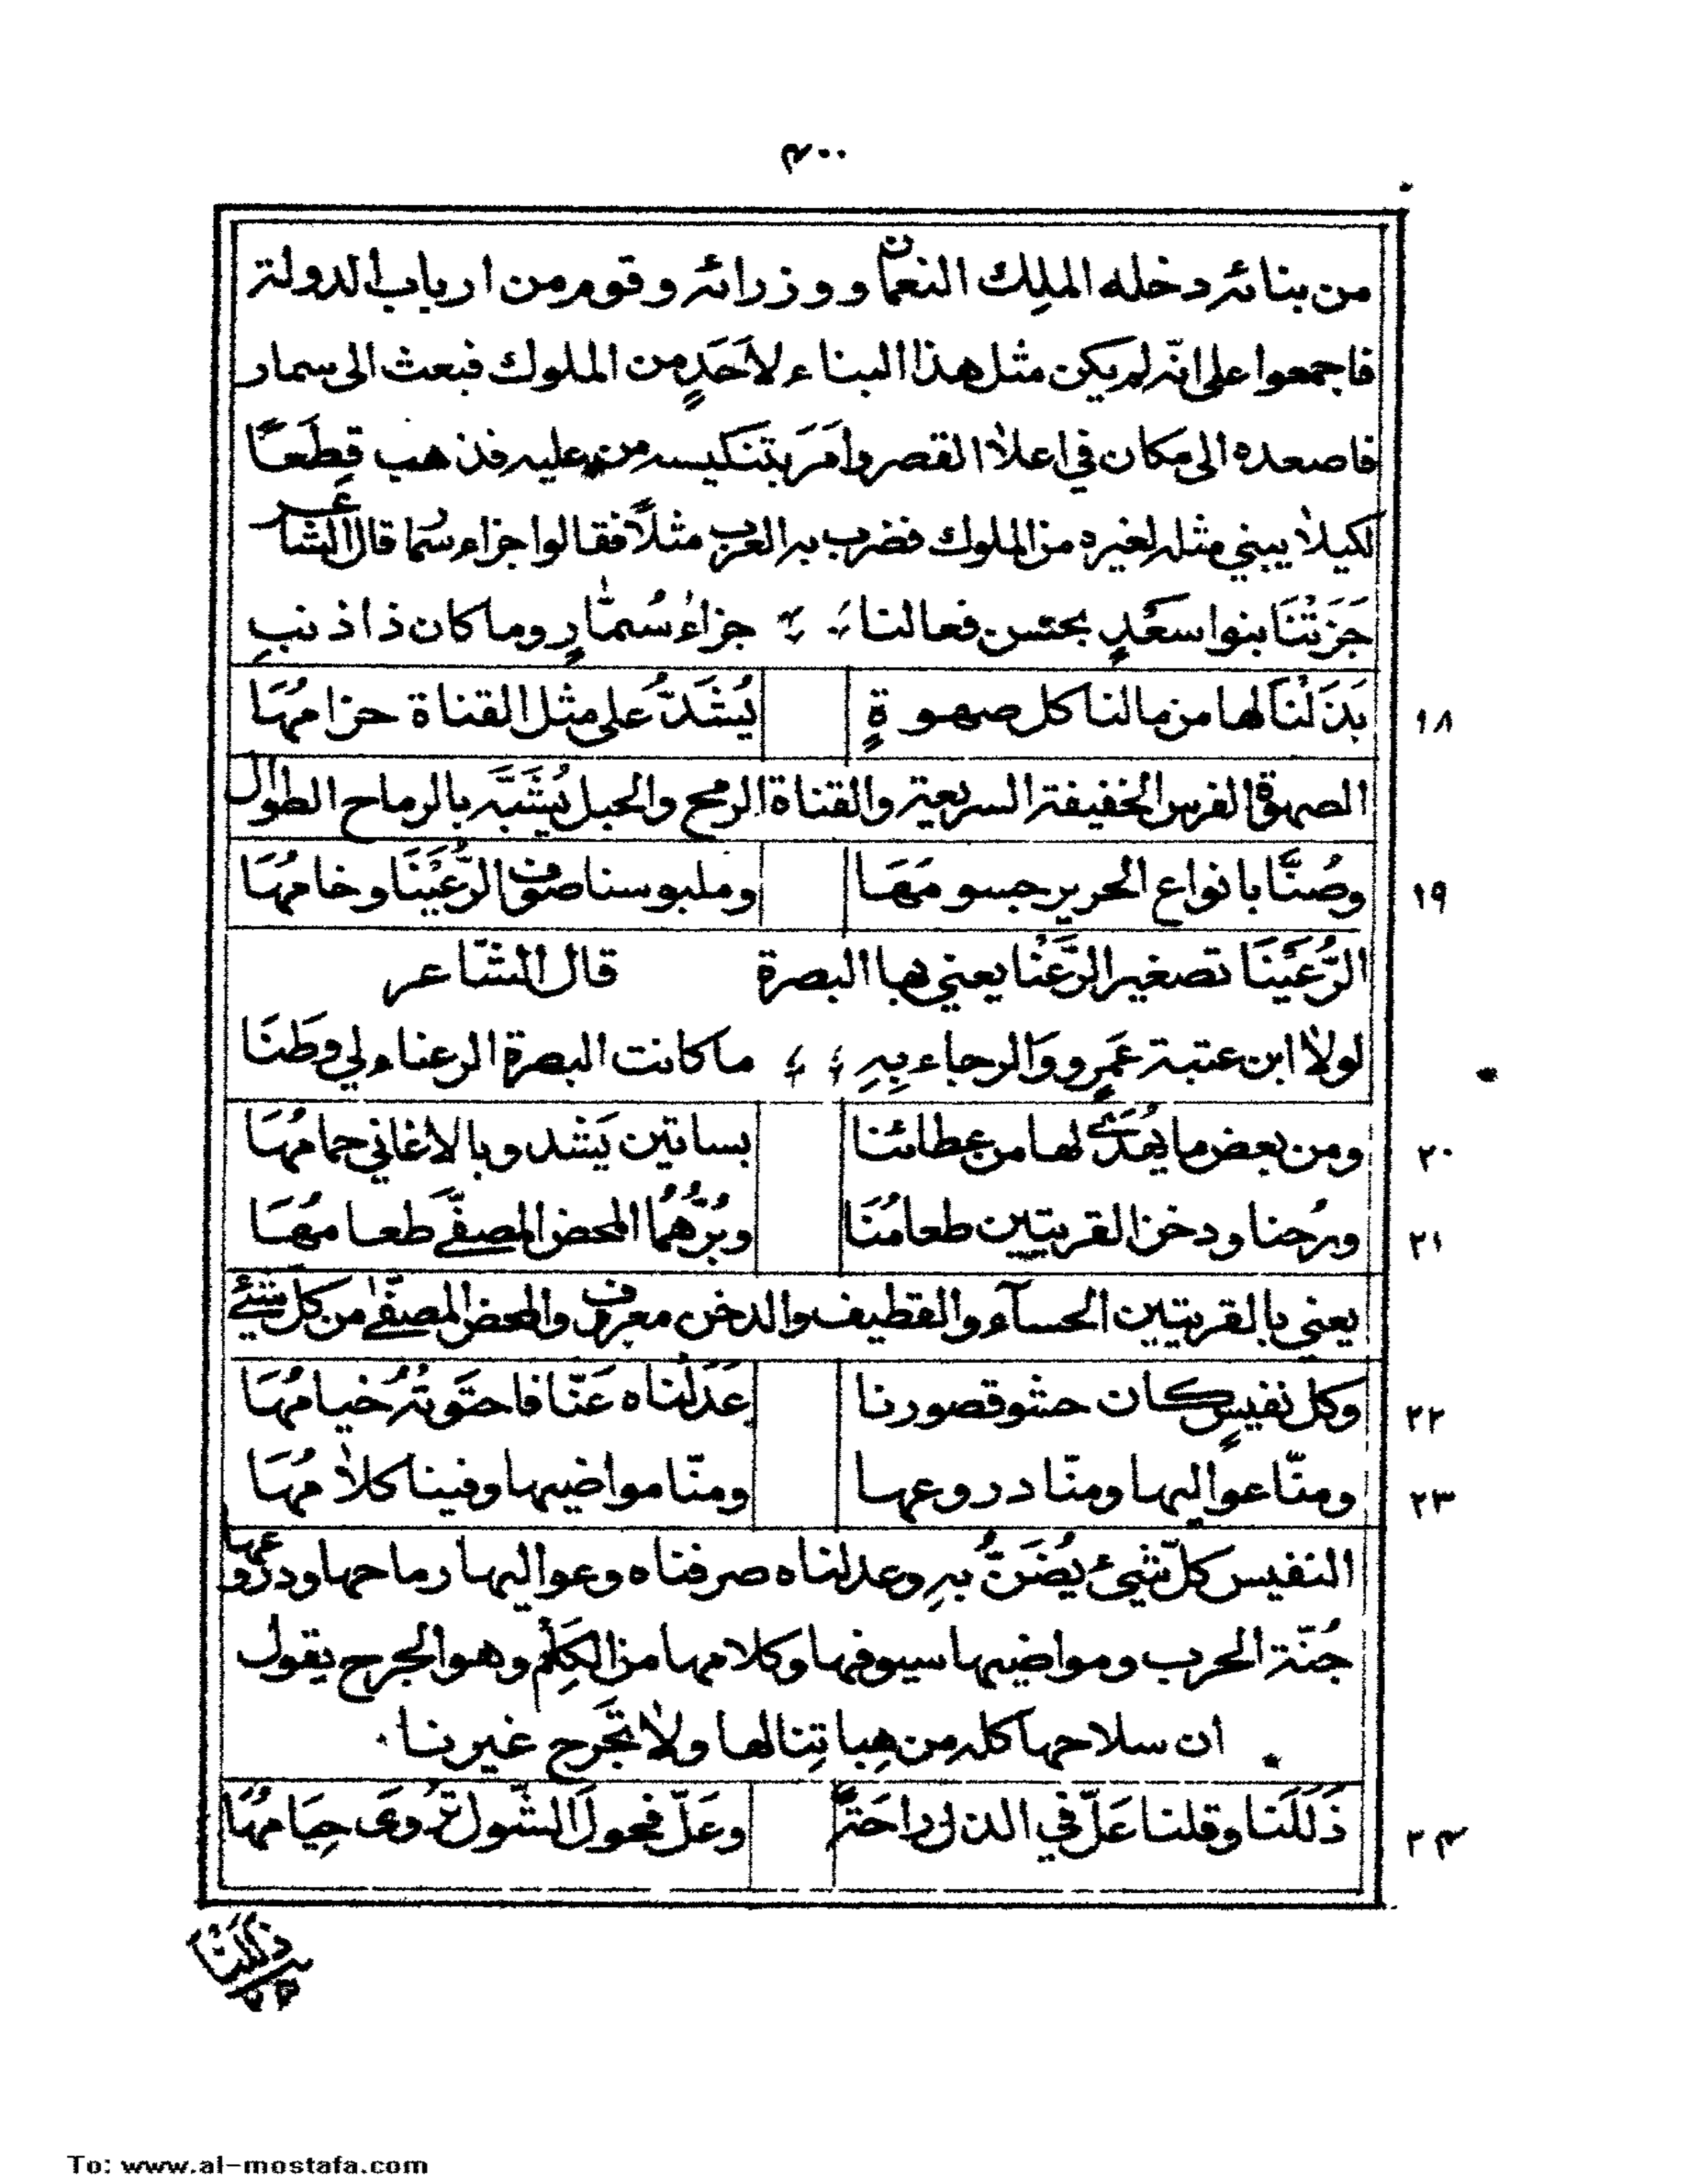 ٤٠٠
من بنائه دخله الملِك النعمان ووزرائه وقوم من ارباب الدولة
فاجمعوا على انّه لم يكن مثل هذا البناء لأحَدٍ من الملوك فبعث الى سمار
فاصعده الى مكان في اعلا القصر وأمَرَ بتنكيسه من عليه فذهب قِطَعًا
لكيلا يبني مثله لغيره من الملوك فضرب به العرب مثلًا فقالوا جزاء سُمار قال الشاعر
جَزَتْنَا بنوا سعْدٍ بحسن فعالنا جزاءُ سُمّارٍ وما كان ذا ذنبِ
١٨ بَذَلْنَا لها من مالنا كل صهوةٍ يُشَدُّ على مثل القناة حزامهَا
الصهوة الفرس الخفيفة السريعة والقناة الرمح والخيل يُشَبَّه بالرماح الطوال
١٩ وصُنَّا بانواع الحرير جسومَهَا وملبوسنا صوف الرُّعَيْنَا وخامُهَا
الرُّعَيْنَا تصغير الرَّعْنَا يعني بها البصرة قال الشّاعر
لولا ابن عتبة عَمرٍو وَالرجاء بِهِ ما كانت البصرة الرعناء لي وَطَنَا
٢٠ ومن بعض ما يُهدَى لها من عطائنا بساتين يَشدو بالاغاني حمامُهَا
٢١ ورُحنا ودخن القريتين طعامُنَا وبُرُّهُمُا المحض المصفَّى طعامهَا
يعني بالقريتين الحسآء والقطيف والدخن معروف والمحض المصفّى من كل شيئ
٢٢ وكل نفيسٍ كان حشو قصورنا عَدَلْناه عَنّا فاحتَوتْهُ خيامُهَا
٢٣ ومنّا عواليها ومنّا دروعها ومنّا مواضيها وفينا كلامُهَا
النفيس كل شيئ يُضَنُّ بهِ وعدلناه صرفناه وعواليها رماحها ودروعها
جُنّة الحرب ومواضيها سيوفها وكلامها من الكَلْمِ وهو الجرح يقول
ان سلاحها كله من هِباتِنا لها ولا تَجرح غيرنا
٢٤ ذَلَلَنا وقلنا عَلّ في الذل راحَةً وعَلّ فحولَ الشول تُروَى حِيَامُهَا
ذللنا
To: www.al-mostafa.com